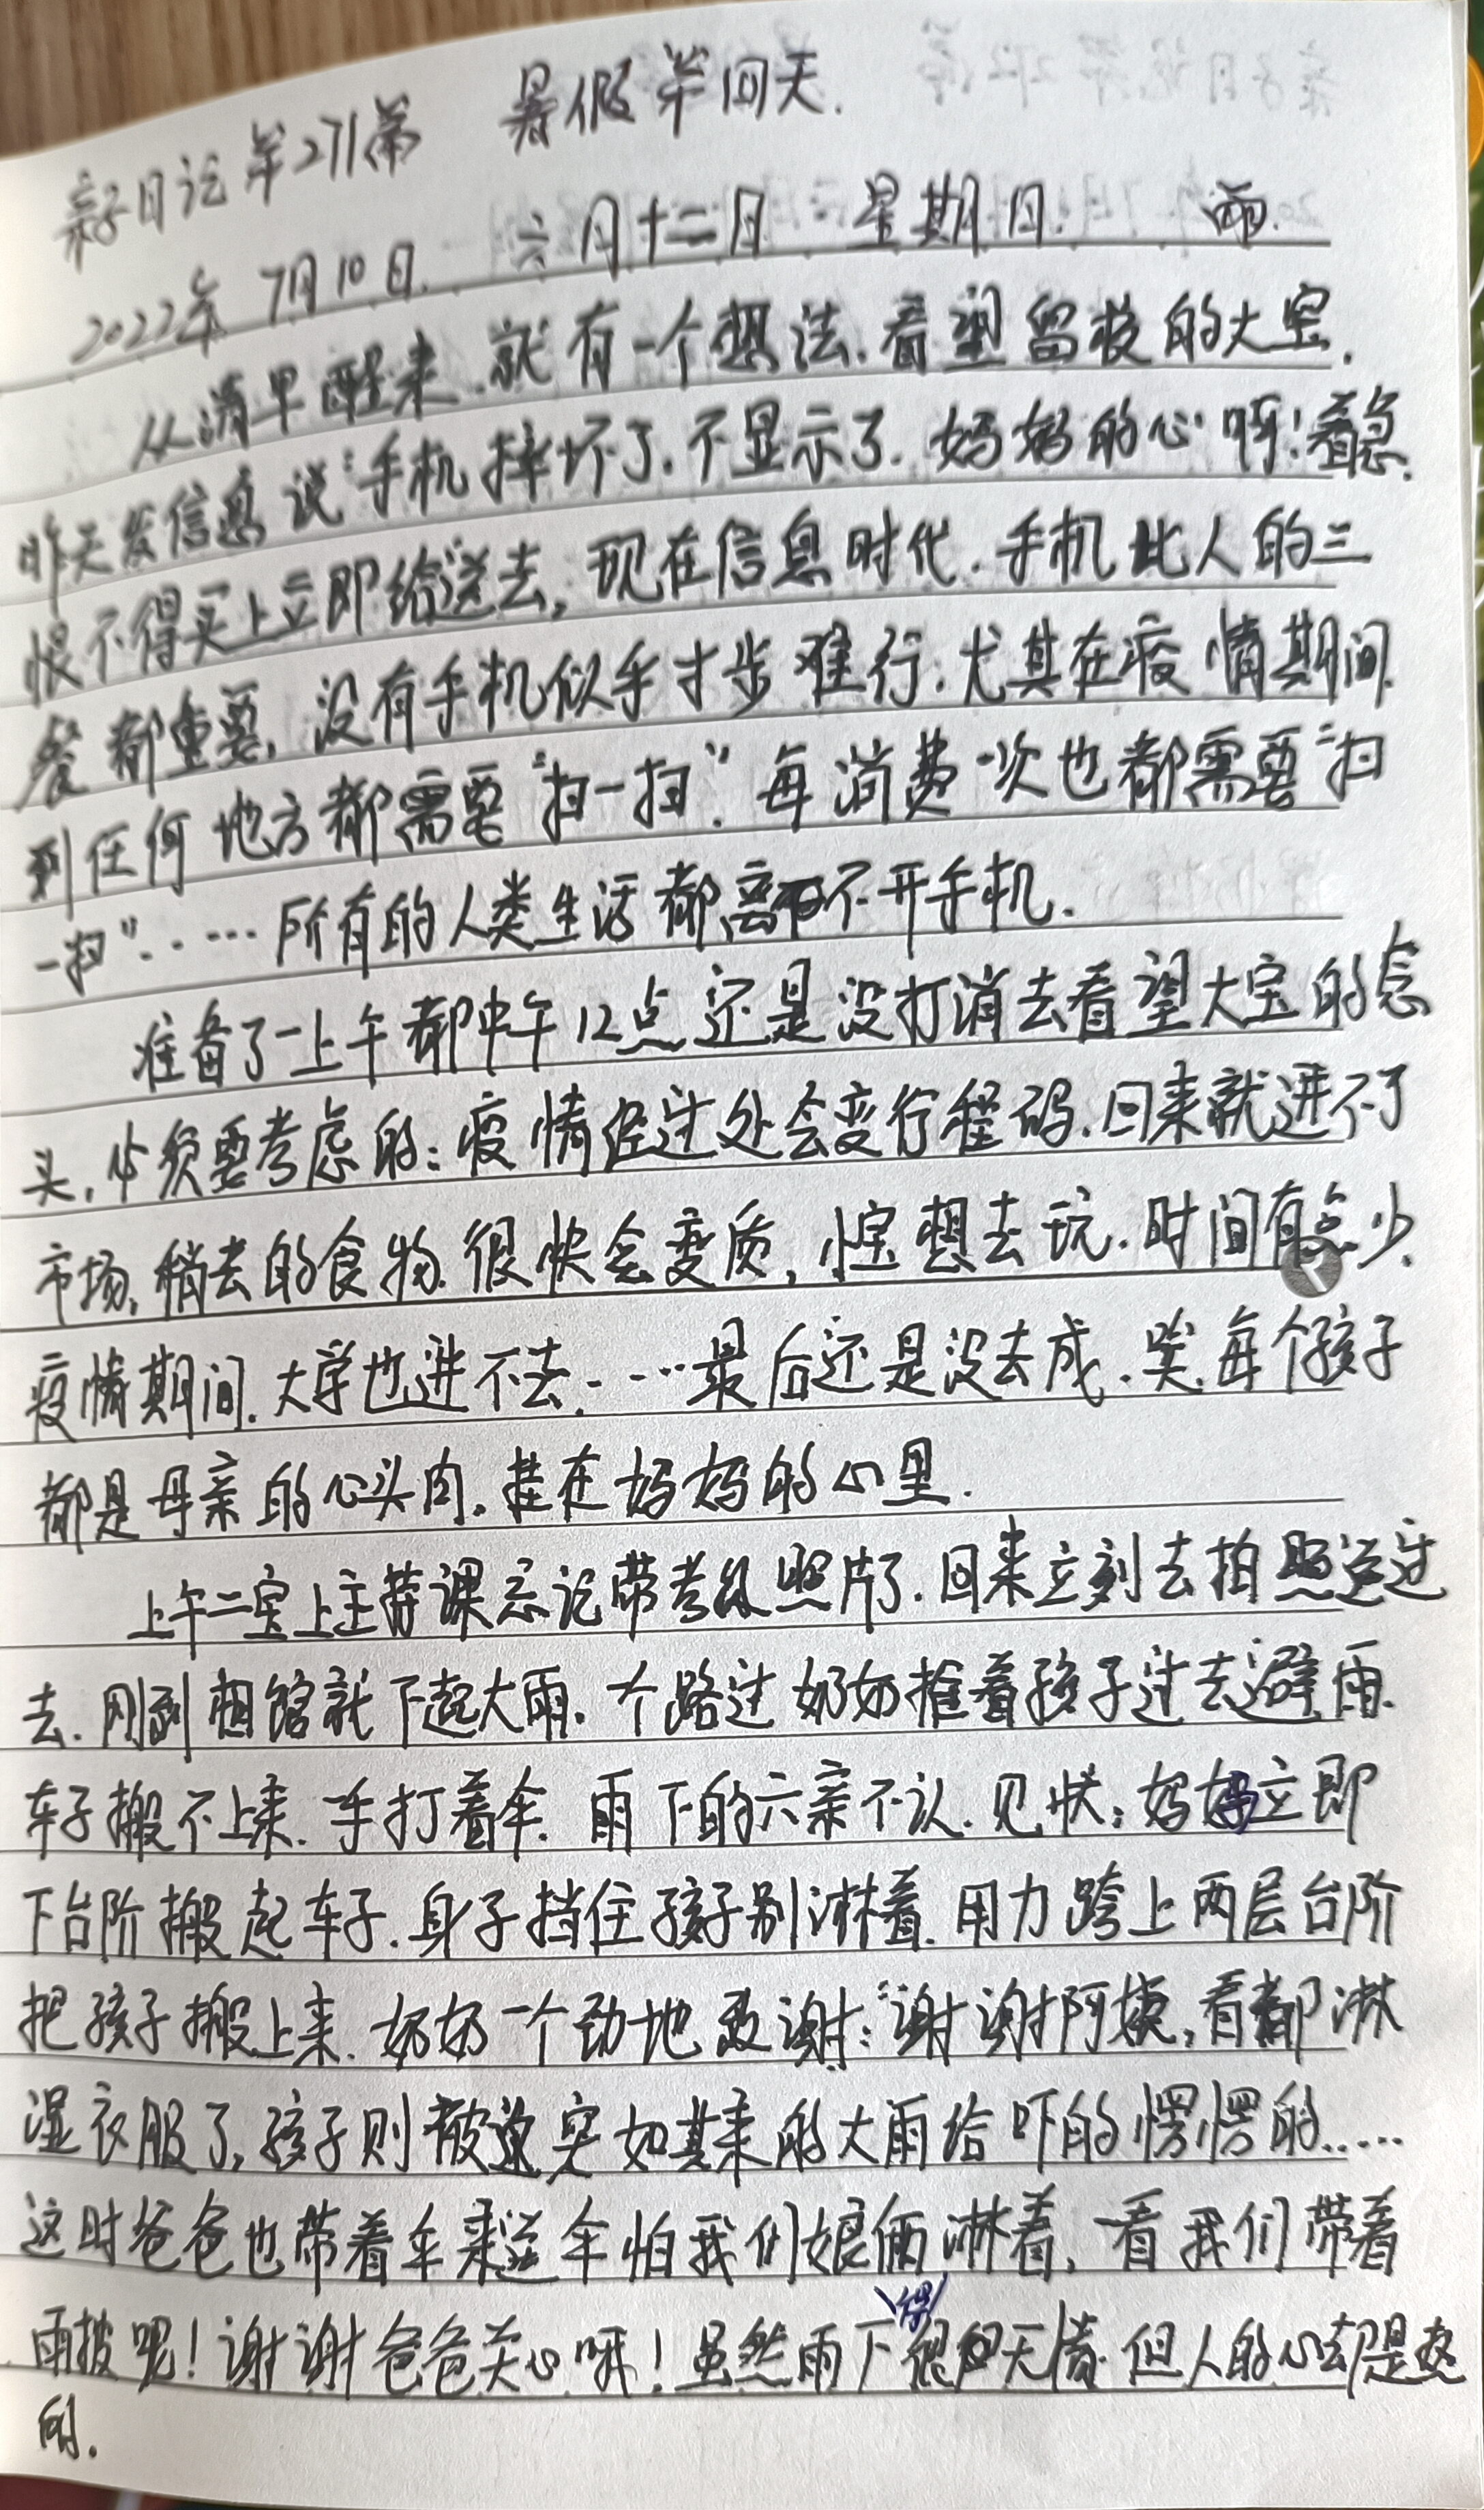 亲子日记第271篇 暑假第四天.
2022年7月10日. 六月十二日 星期日. 雨.
从清早醒来.就有一个想法.看望留校的大宝.
昨天发信息说:手机摔坏了.不显示了.妈妈的心呀!着急.
恨不得买上立即给送去,现在信息时代.手机比人的三
餐都重要,没有手机似乎寸步难行.尤其在疫情期间.
到任何地方都需要“扫一扫”.每消费一次也都需要“扫
一扫”……所有的人类生活都离不开手机.
准备了一上午都中午12点还是没打消去看望大宝的念
头,必须要考虑的:疫情经过处会变行程码.回来就进不了
市场,稍去的食物.很快会变质,小宝想去玩.时间有点少.
疫情期间.大学也进不去……最后还是没去成.唉.每个孩子
都是母亲的心头肉.挂在妈妈的心里.
上午二宝上主持课忘记带考级照片了.回来立刻去拍照送过
去.刚到相馆就下起大雨.个路过奶奶推着孩子过去避雨.
车子搬不上来.一手打着伞.雨下的六亲不认.见状:妈妈立即
下台阶搬起车子.身子挡住孩子别淋着.用力跨上两层台阶
把孩子搬上来.奶奶一个劲地致谢:“谢谢阿姨,看都淋
湿衣服了,孩子则被这突如其来的大雨给吓的愣愣的……
这时爸爸也带着伞来送伞怕我们娘俩淋着,一看我们带着
雨披呢!谢谢爸爸关心呀!虽然雨下得很无情.但人的心却是
的.